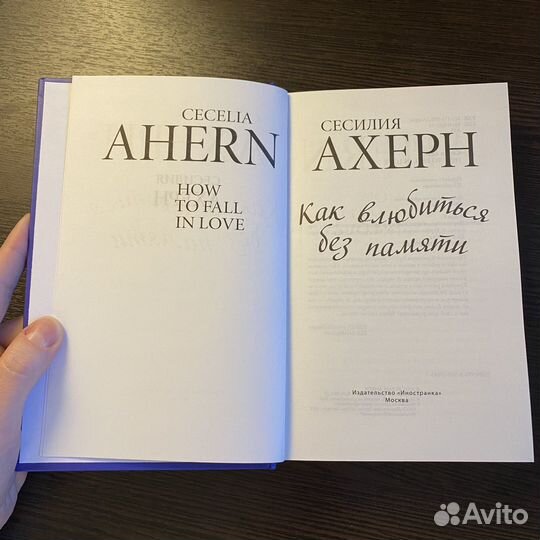 CECELIA
AHERN
HOW
TO FALL
IN LOVE
СЕСИЛИЯ
АХЕРН
Как влюбиться
без памяти
Издательство «Иностранка»
Москва
Avito